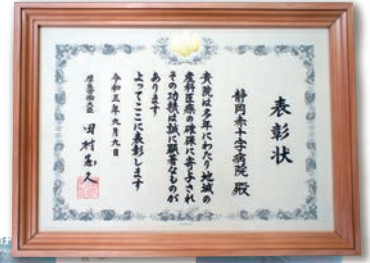 表彰状
静岡赤十字病院 殿
貴院は多年にわたり地域の
産科医療の確保に寄与され
その功績は誠に顕著なものが
あります
よってここに表彰します
令和三年九月九日
厚生労働大臣 田村憲久